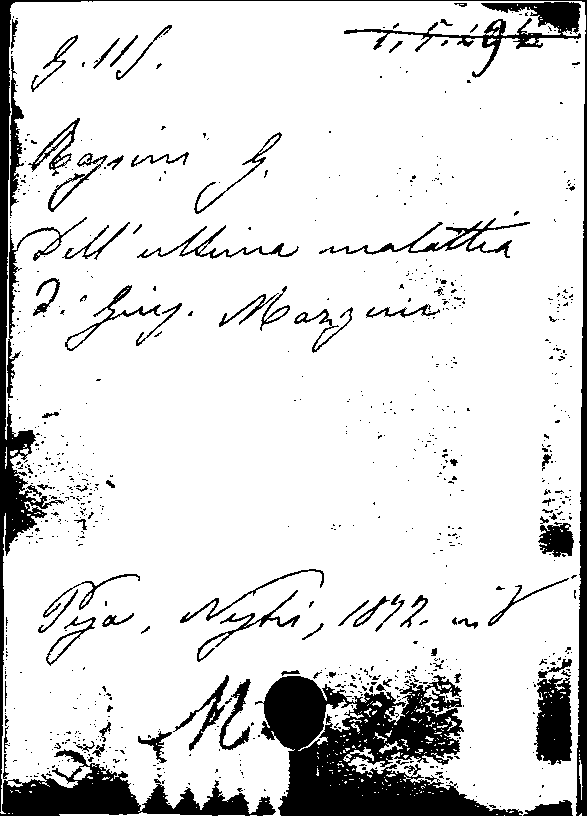 G. 115.
Rossini G.
Dell'ultima malattia
di Gius. Mazzini
Pisa, Nistri, 1872. in 8
M